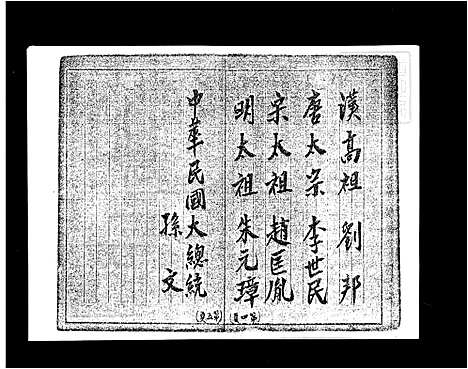 漢高祖 劉邦
唐太宗 李世民
宋太祖 趙匡胤
明太祖 朱元璋
中華民國大總統
孫文